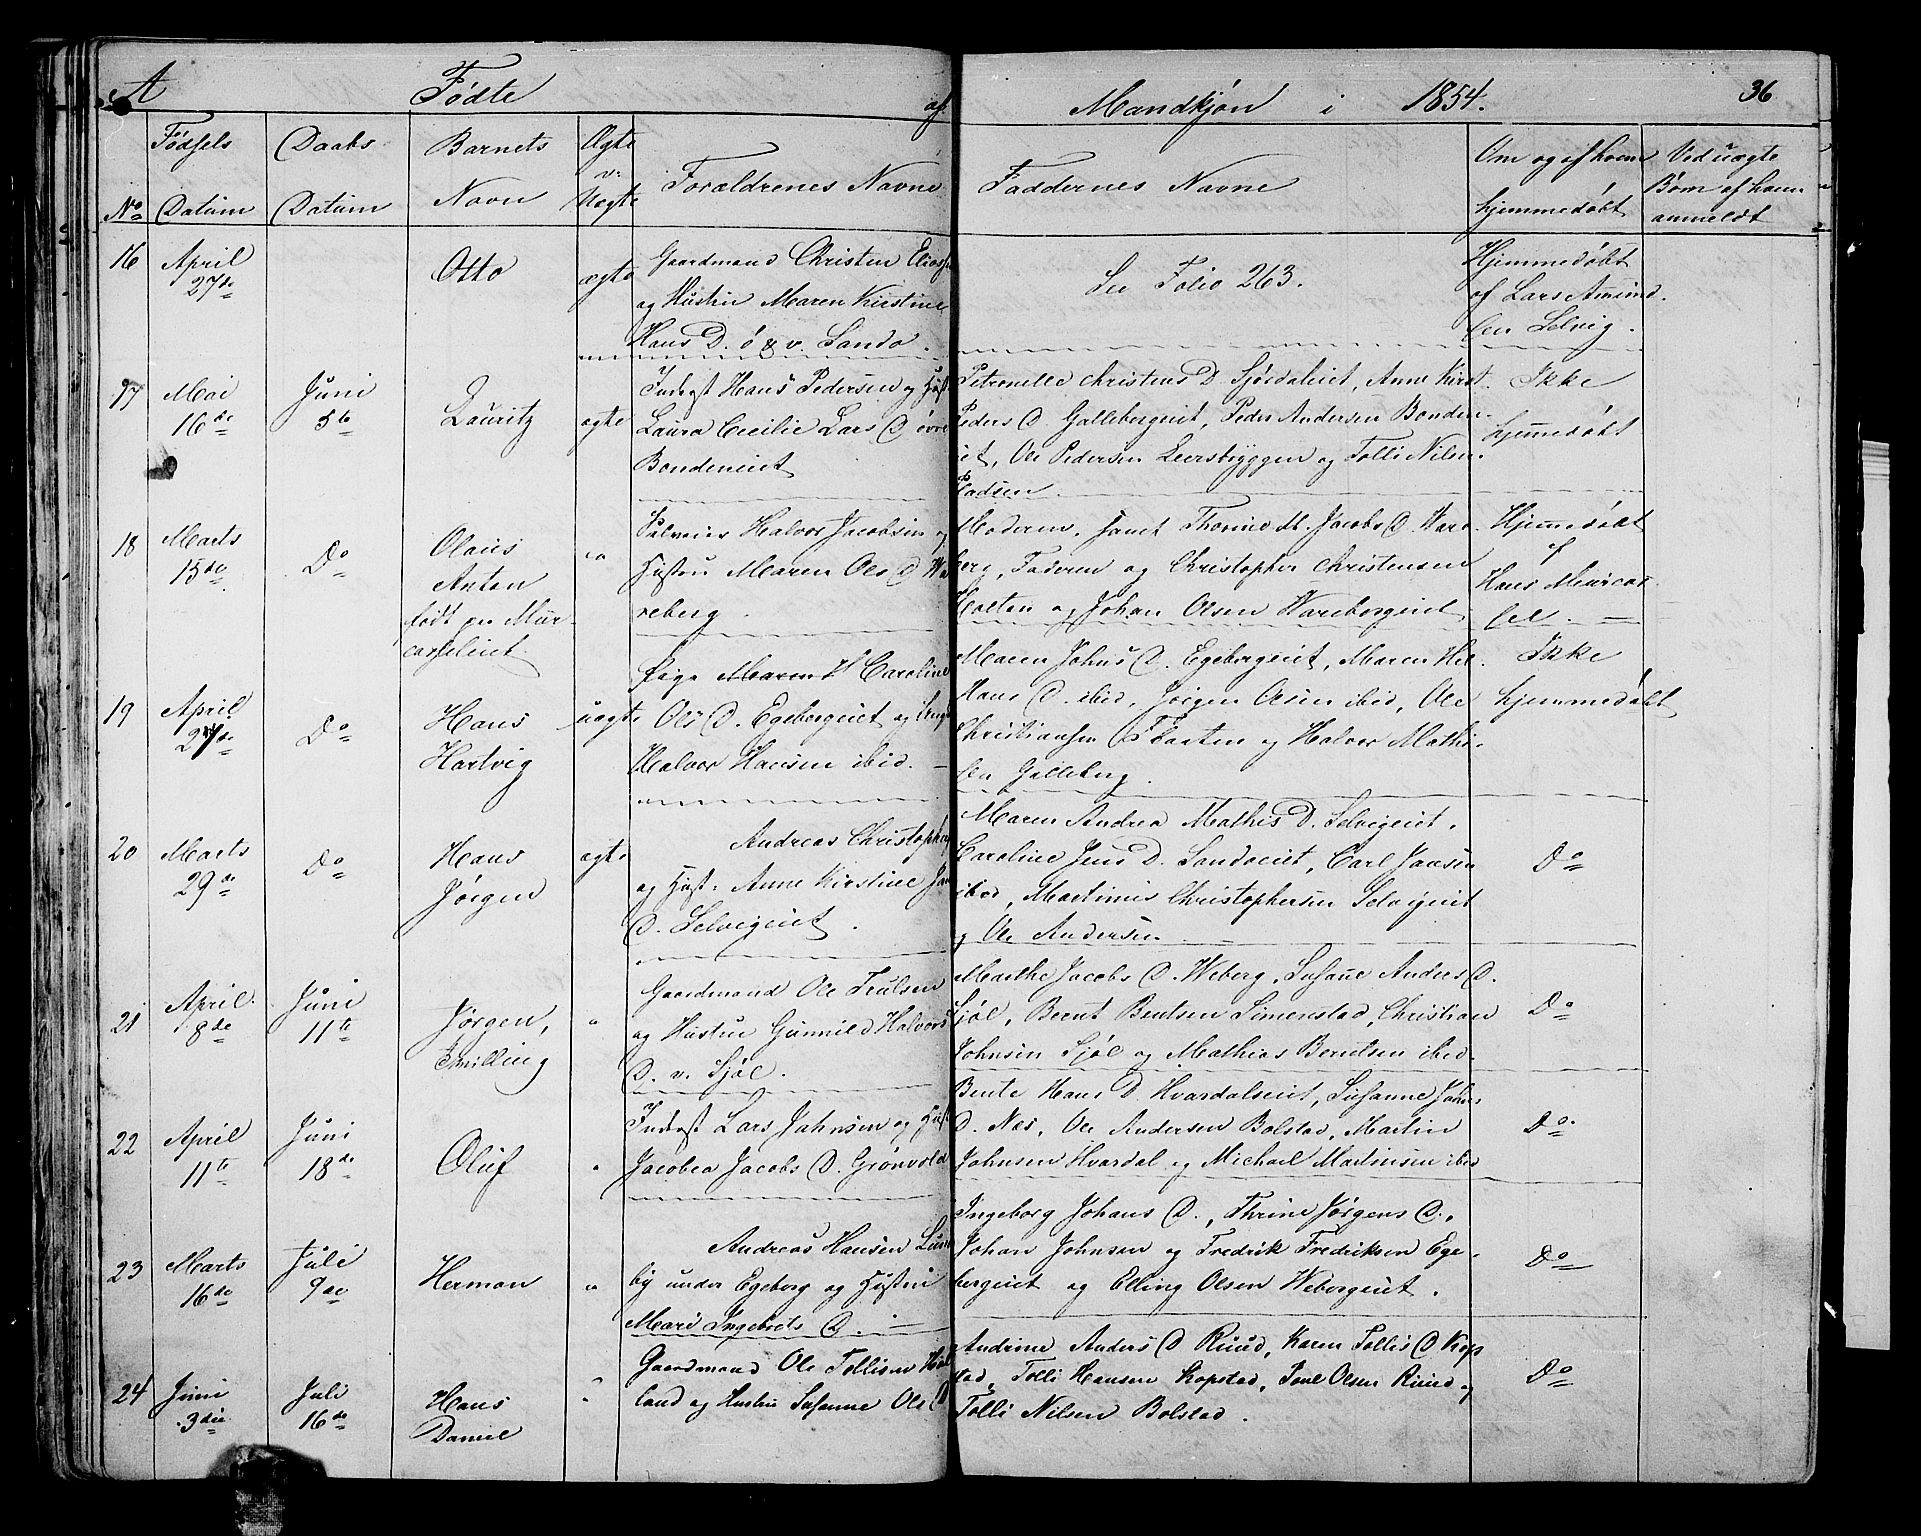 A Fødte af Mandkjøn i 1854. 36
No Fødsels Datum Daabs Datum Barnets Navn Ægte v. Uægte Forældrenes Navne Faddernes Navne Om og af hvem hjemmedøbt Ved uægte Børn af hvem anmeldt
16 April 27de Otto ægte
Gaardmand Christen Elias
og Hustru Maren Kirstine
Hans D. ø & v. Sando.
See Folio 263.
Hjemmedøbt
af Lars Amund
sen Selvig.
17 Mai 16de Juni 5te Lauritz ægte
Inderst Hans Pedersen og Hust
Laura Cecilie Lars D øvre
Bondeneiet
Petronelle Christens D. Sjøedaleiet, Anne Kirst.
Peders D Gallebergeiet, Peder Andersen Bonden-
eiet, Ole Pedersen Leersbryggen og Tolli Nilsen
Pladsen
Ikke
hjemmedøbt
18 Marts 15de Do Olaus
Anton
født paa Mür-
casseleiet
Halvor Jacobsen og
Hustru Maren Ols D Wa
reberg.
Moderen, Jomf. Thorine M. Jacobs D. Ware
berg, Faderen og Christopher Christensen
Holten og Johan Olsen Warebergeiet
Hjemmedøbt
af
Hans Murcas
sel.
19 April 27de Do Hans
Hartvig uægte
Pige Maren K Caroline
Ols D. Egebergeiet og Ungk
Halvor Hansen ibid.
Maren Johns D. Egebergeiet, Maren Hel.
Hans D. ibid, Jørgen Olsen ibid, Ole
Christiansen Faasten og Halvor Mathi-
sen Galleberg.
Ikke
hjemmedøbt
20 Marts 29de Do Hans
Jørgen ægte
Andreas Christophers
og Hust: Anne Kirstine Jans
D. Selvigeiet.
Maren Andrea Mathis D. Selvigeiet,
Caroline Jens D. Sandoeiet, Carl Jansen
ibid, Martinus Christophersen Selvigeiet
og Ole Andersen
Do
21 April 8de Juni 11te Jørgen,
Tvilling "
Gaardmand Ole Trulsen
og Hustru Gunnild Halvors
D. v. Sjøl.
Marthe Jacobs D. Weberg, Susane Andres D.
Sjøl, Bernt Bentsen Simenstad, Christian
Johnsen Sjøl og Mathias Berntsen ibid.
Do
22 April 11te Juni 18de Oluf "
Inderst Lars Jahnsen og Hust
Jacobea Jacobs D. Grønvold
Bente Hans D. Hvardalseiet, Susanne Johns
D. Næs, Ole Andersen Bolstad, Martin
Johnsen Hvardal og Michael Martinsen ibid
Do.
23 Marts 16de Juli 9de Herman "
Andreas Hansen Lund
by under Egeberg og Hustru
Mari Ingebrets D.
Ingeborg Johans D., Thrine Jørgens D.,
Johan Johnsen og Fredrik Fredriksen Ege-
bergeiet og Elling Olsen Webergeiet.
Do
24 Juni 3die Juli 16de Hans
Daniel "
Gaardmand Ole Tollisen Hol
land og Hustru Susanne Ols D
Andrine Anders D Ruud, Karen Tollis D Kop
stad, Tolli Hansen Kopstad, Poul Olsen Ruud og
Tolli Nilsen Bolstad.
Do